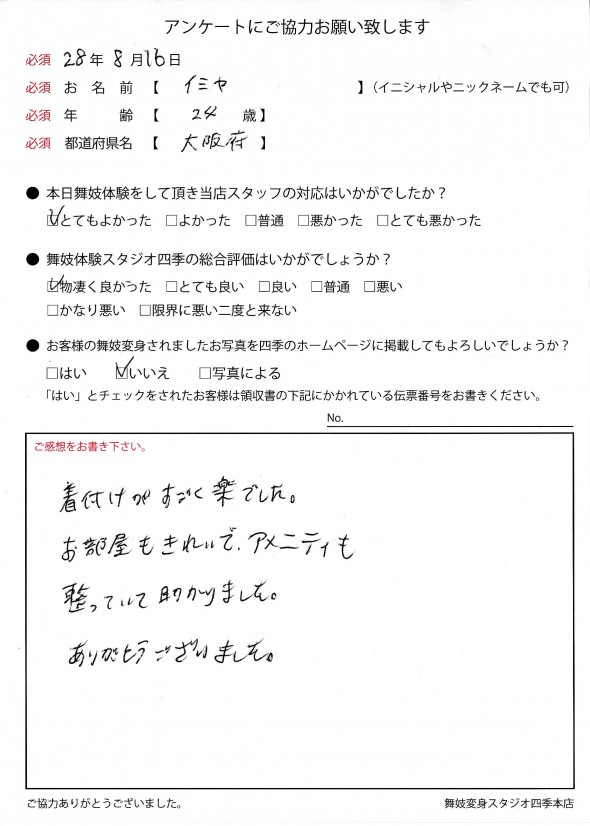 アンケートにご協力お願い致します
必須 28年 8月16日
必須 お名前 【 イミヤ 】（イニシャルやニックネームでも可）
必須 年齢 【 24 歳】
必須 都道府県名 【 大阪府 】
● 本日舞妓体験をして頂き当店スタッフの対応はいかがでしたか？
☑とてもよかった □よかった □普通 □悪かった □とても悪かった
● 舞妓体験スタジオ四季の総合評価はいかがでしょうか？
☑物凄く良かった □とても良い □良い □普通 □悪い
□かなり悪い □限界に悪い二度と来ない
● お客様の舞妓変身されましたお写真を四季のホームページに掲載してもよろしいでしょうか？
□はい ☑いいえ □写真による
「はい」とチェックをされたお客様は領収書の下記にかかれている伝票番号をお書きください。
No.
ご感想をお書き下さい。
着付けがすごく楽でした。
お部屋もきれいで、アメニティも
整っていて助かりました。
ありがとうございました。
ご協力ありがとうございました。
舞妓変身スタジオ四季本店